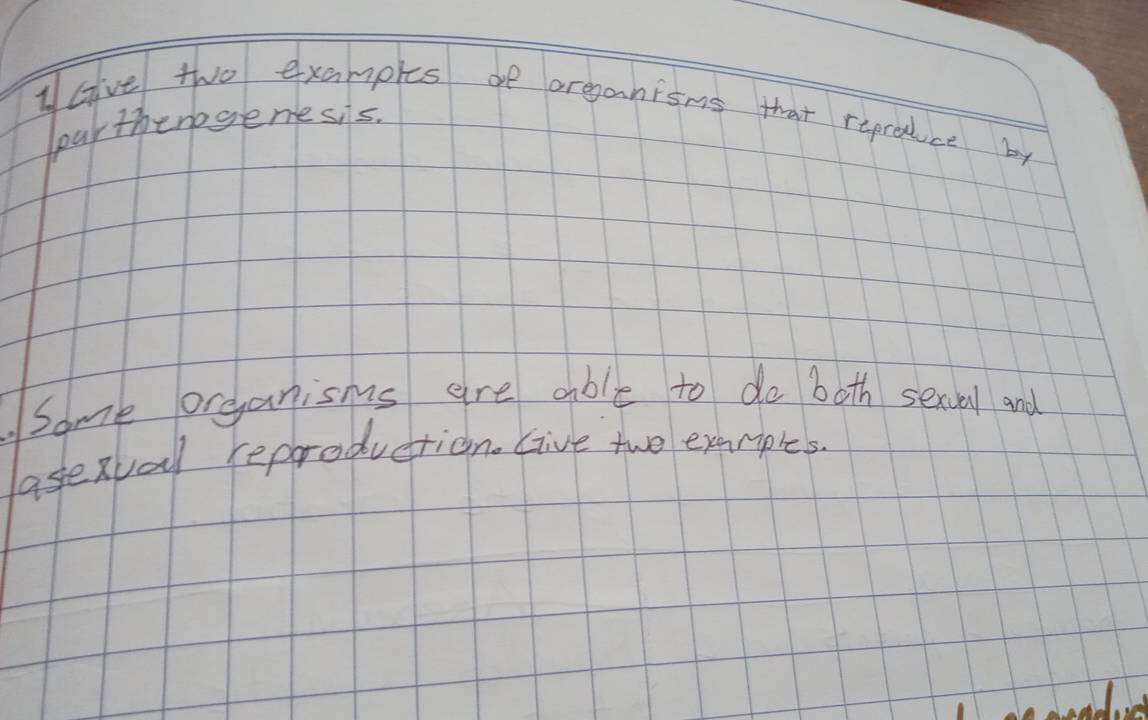 1. Give two examples of oreganisms that reproduce by
parthenogenesis.
Some organisms are able to do both sexual and
asexual reporoduction. Give two examples.